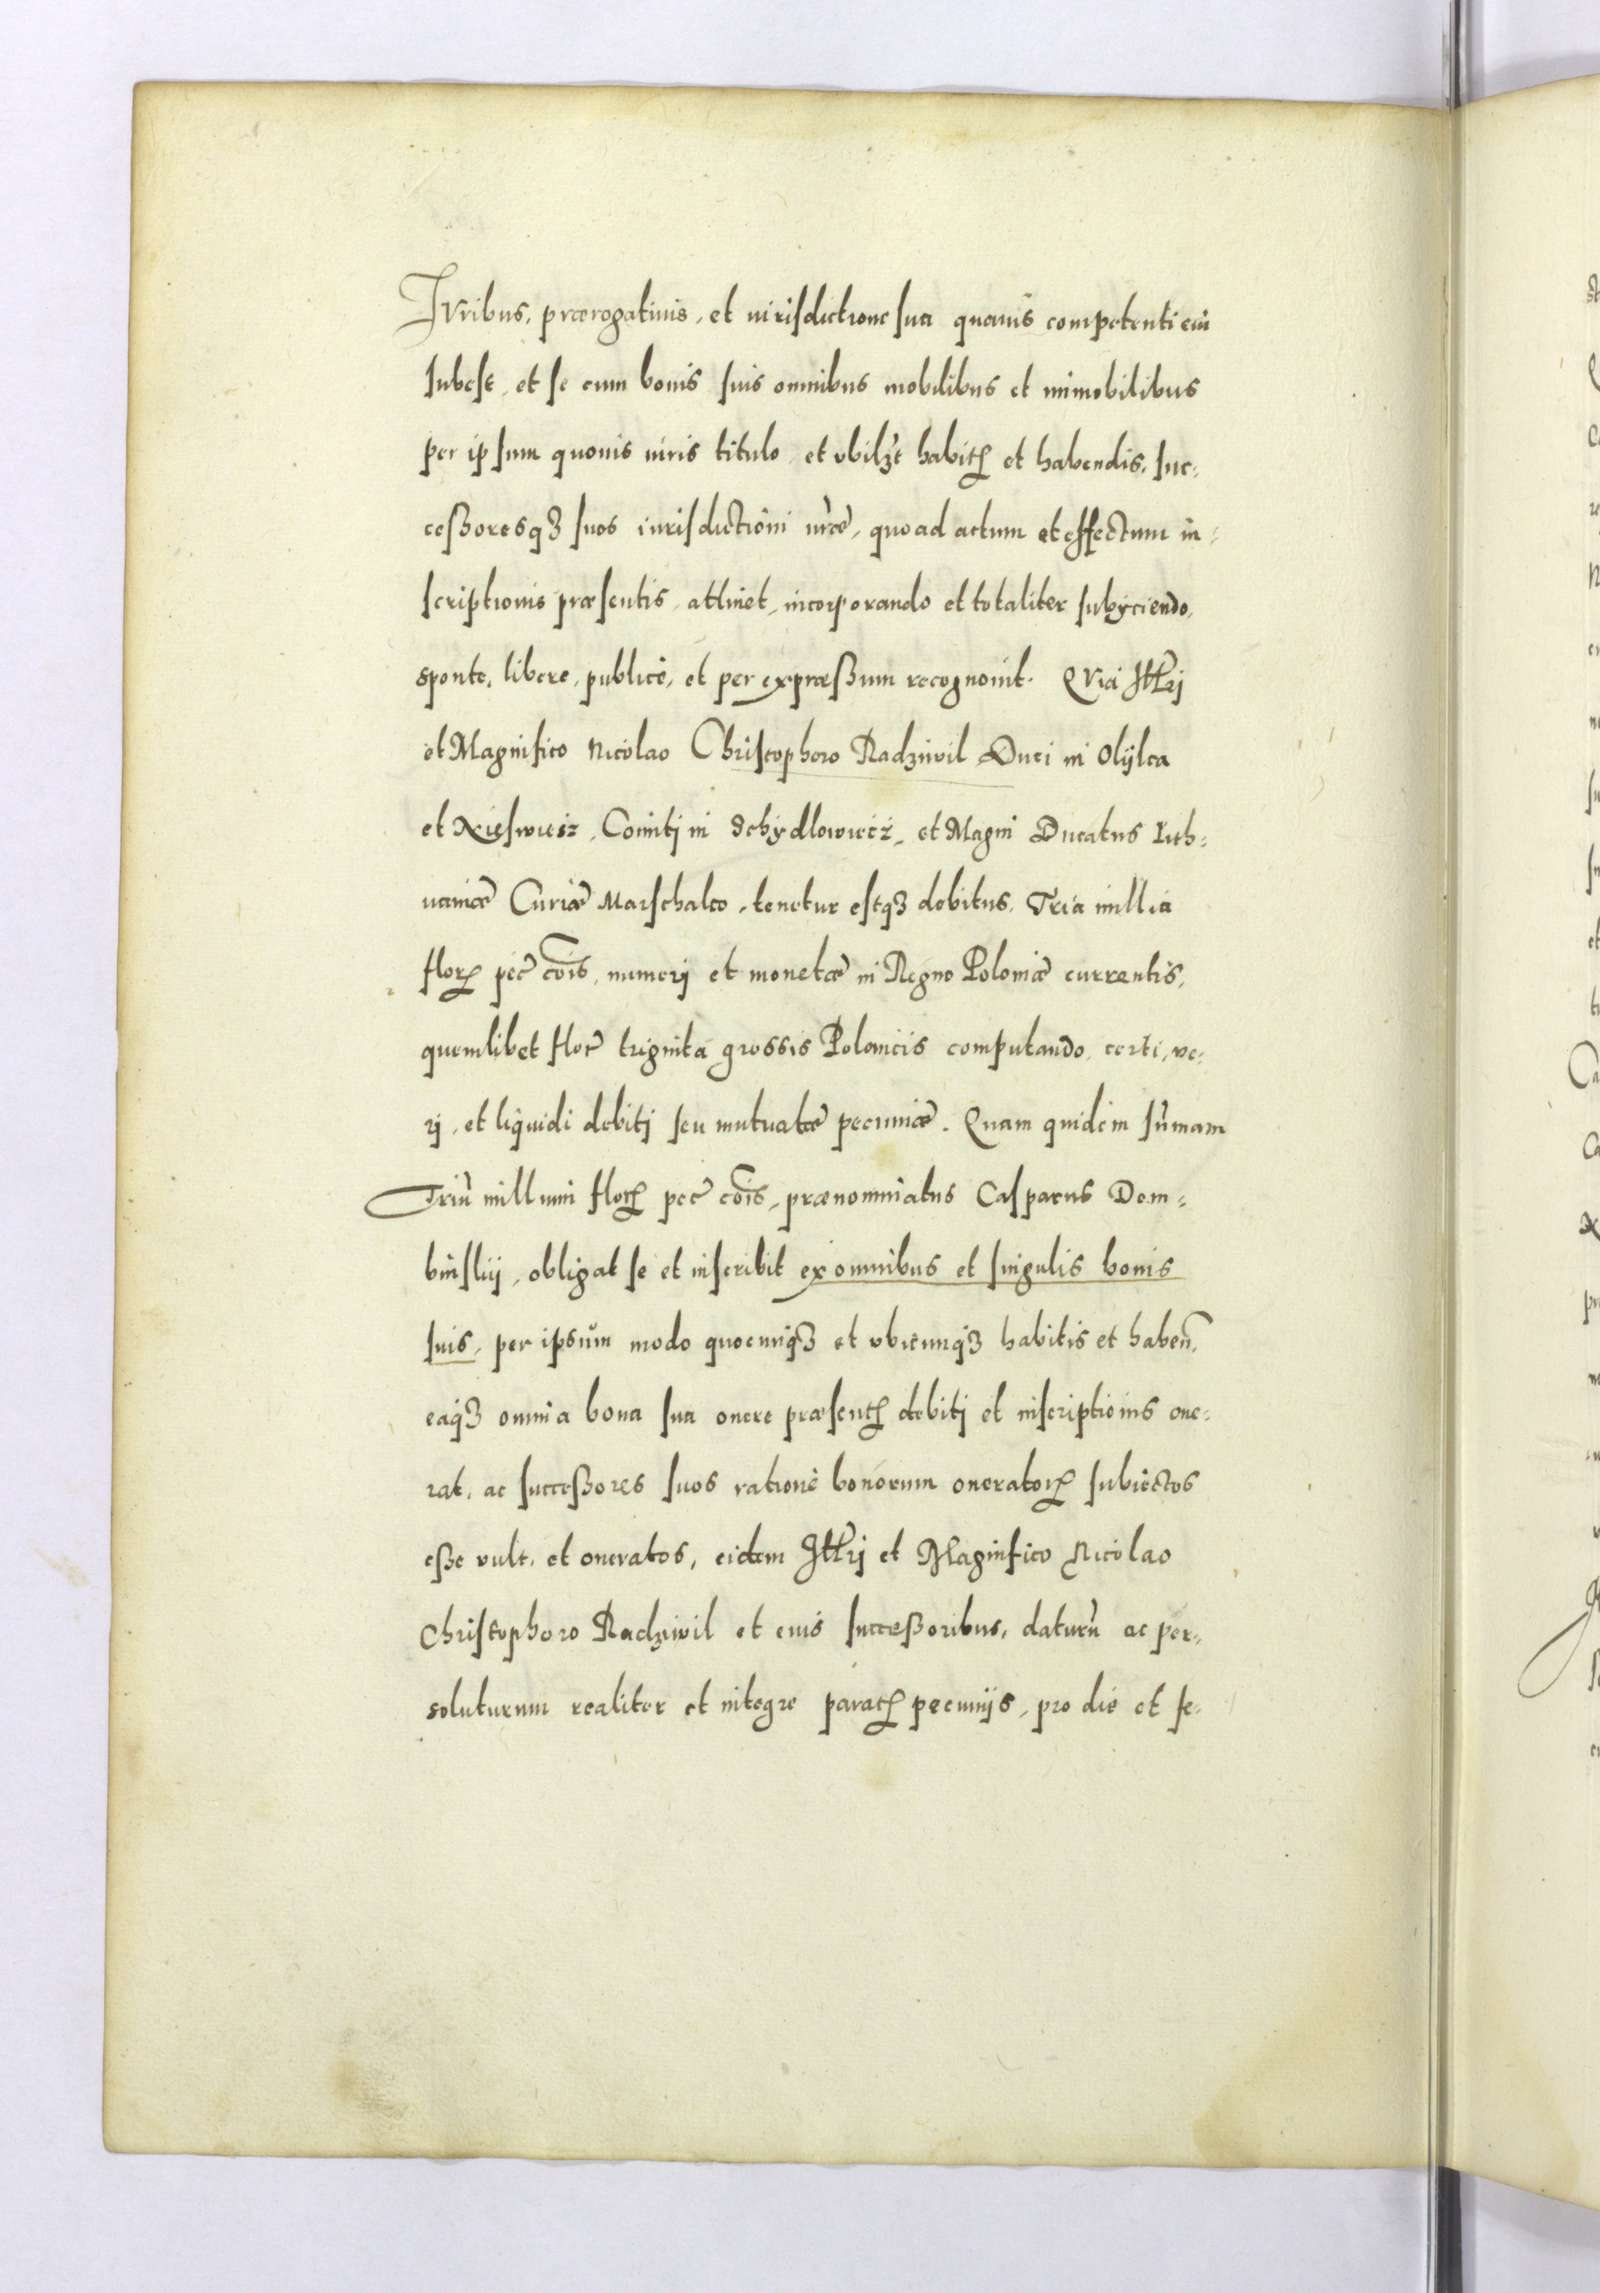 IVribus, prærogatiuis, et iurisdictione sua quauis competenti cui
subest, et se cum bonis suis omnibus mobilibus et immobilibus
per ipsum quouis iuris titulo, et vbilꝫt habitꝭ et habendis, suc-
ceßoresqꝫ suos iurisdictioni nr̃æ, quoad actum et effectum in-
scriptionis præsentis, attinet, incorporando et totaliter subijciendo,
sponte, libere, publicè, et per expræßum recognouit. QVia Illr̃i
et Magnifico Nicolao Christophoro Radziuil Duci in Olijka
et Nieswiesz, Comiti in Schÿdlowiecz, et Magni Ducatus Lith-
uaniæ Curiæ Marschalco, tenetur estqꝫ debitus, Tria millia
florꝭ pec̃ cõis, numerj et monetæ in Regno Poloniæ currentis,
quemlibet flor̃ triginta grossis Polonicis computando, certi, ve-
rj, et liquidi debitj seu mutuatæ pecuniæ. Quam quidem sum̃am
Triũ millium florꝭ pec̃ cõis, prænominatus Casparus Dem-
binskij, obligat se et inscribit ex omnibus et singulis bonis
suis, per ipsům modo quocunqꝫ et vbicunqꝫ habitis et haben̄,
eaqꝫ omnia bona sua onere præsentꝭ debitj et inscriptionis one-
rat, ac succeßores suos ratione bonorum oneratorꝭ subiectos
eße vult, et oneratos, eidem Illr̃j et Magnifico Nicolao
Christophoro Radziwil et eius succeßoribus, daturũ ac per-
soluturum realiter et integre paratꝭ pecunijs, pro die et fe-